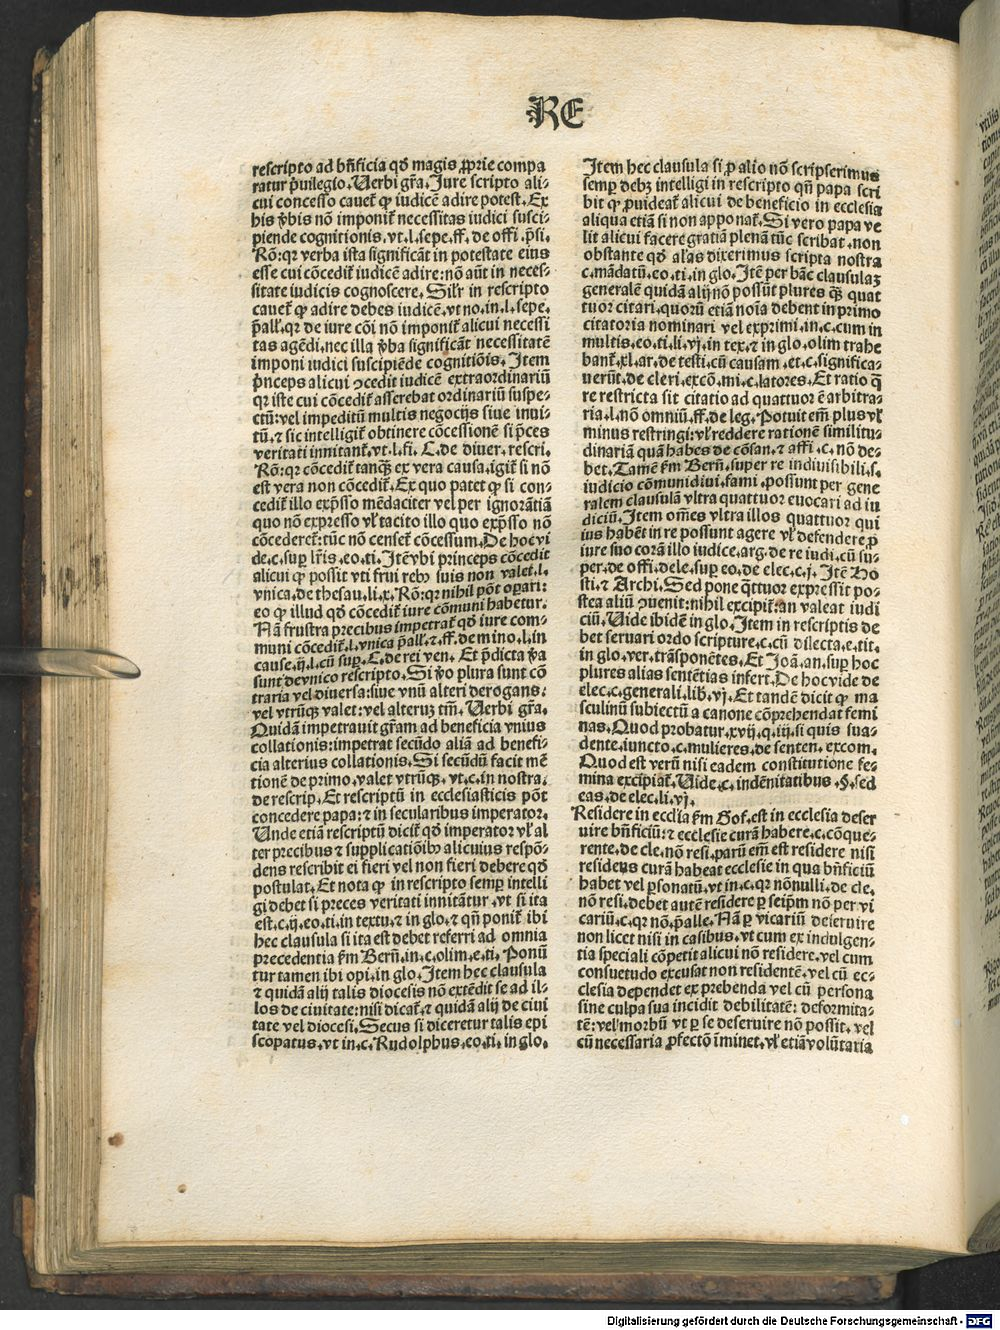 RE
rescripto ad bn̄ficia qd̛ magis ꝓprie compa
ratur p̄uilegio. Verbi gr̄a. Jure scripto ali-
cui concesso cauet̄ ꝙ iudicē adire potest. Ex
his v̄bis nō imponit̄ necessitas iudici susci-
piende cognitionis. vt. l. sepe. ff. de offi. p̄si.
Rō: qr verba ista significāt in potestate eius
esse cui cōcedit̄ iudicē adire: nō aūt in neces-
sitate iudicis cognoscere. Sil̄r in rescripto
cauet̄ ꝙ adire debes iudicē. vt no. in. l. sepe.
p̄all̄. qr de iure cōi nō imponit̄ alicui necessi
tas agēdi. nec illa v̄ba significāt necessitatē
imponi iudici suscipiēde cognitiōis. Item
p̄nceps alicui ↄcedit iudicē extraordinariū
qr iste cui cōcedit̄ asserebat ordinariū suspe-
ctū: vel impeditū multis negocijs siue inui-
tū. ⁊ sic intelligit̄ obtinere cōcessionē si p̄ces
veritati innitant̄. vt. l. fi. C. de diuer. rescri.
Rō: qr cōcedit̄ tanqꝫ ex vera causa. igit̄ si nō
est vera non cōcedit̄. Ex quo patet ꝙ si con-
cedit̄ illo exp̄sso mēdaciter vel per ignorātiā
quo nō expresso vl̄ tacito illo quo exp̄sso nō
cōcederet̄: tūc nō censet̄ cōcessum. De hoc vi
de. c. sup̱ lr̄is. eo. ti. Itē vbi princeps cōcedit
alicui ꝙ possit vti frui rebꝰ suis non valet. l.
vnica. de thesau. li. x. Rō: qr nihil pōt oꝑari:
eo ꝙ illud qd̛ cōcedit̄ iure cōmuni habetur.
Nā frustra precibus impetrat̄ qd̛ iure com-
muni cōcedit̄. l. vnica p̄all̄. ⁊ ff. de mino. l. in
cause. ij. l. cū sup̱. C. de rei ven. Et p̄dicta v̄a
sunt de vnico rescripto. Si v̄o plura sunt cō
traria vel diuersa: siue vnū alteri derogans:
vel vtrūqꝫ valet: vel alteruꝫ tm̄. Verbi gr̄a.
Quidā impetrauit gr̄am ad beneficia vnius
collationis: impetrat secūdo aliā ad benefi-
cia alterius collationis. Si secūdū facit mē
tionē de primo. valet vtrūqꝫ. vt. c. in nostra.
de rescrip. Et rescriptū in ecclesiasticis pōt
concedere papa: ⁊ in secularibus imperator.
Unde etiā rescriptū dicit̄ qd̛ imperator vl̄ al
ter precibus ⁊ supplicatiōibꝰ alicuius respō-
dens rescribit ei fieri vel non fieri debere qd̛
postulat. Et nota ꝙ in rescripto semꝑ intelli
gi debet si preces veritati innitātur. vt si ita
est. c. ij. eo. ti. in textu. ⁊ in glo. ⁊ qn̄ ponit̄ ibi
hec clausula si ita est debet referri ad omnia
precedentia ẜm Bern̄. in. c. olim. e. ti. Ponū
tur tamen ibi opi. in glo. Item hec clausula
⁊ quidā alij talis diocesis nō extēdit se ad il-
los de ciuitate: nisi dicat̄. ⁊ quidā alij de ciui
tate vel diocesi. Secus si diceretur talis epi
scopatus. vt in. c. Rudolphus. eo. ti. in glo.
Item hec clausula si ꝓ alio nō scripserimus
semꝑ debꝫ intelligi in rescripto qn̄ papa scri
bit ꝙ ꝓuideat̄ alicui de beneficio in ecclesia
aliqua etiā si non apponat̄. Si vero papa ve
lit alicui facere gratiā plenā tūc scribat. non
obstante qd̛ al̄as dixerimus scripta nostra
c. mādatū. eo. ti. in glo. Itē per hāc clausulaꝫ
generalē quidā alij nō possūt plures qꝫ quat
tuor citari. quorū etiā noīa debent in primo
citatoria nominari vel exprimi. in. c. cum in
multis. eo. ti. li. vj. in tex. ⁊ in glo. olim trahe
bant̄. xl. ar. de testi. cū causam. et. c. significa-
uerūt. de cleri. excō. mi. c. latores. Et ratio q̄
re restricta sit citatio ad quattuor ē arbitra-
ria. l. nō omniū. ff. de leg. Potuit em̄ plus vl̄
minus restringi: vl̄ reddere rationē similitu-
dinariā quā habes de cōsan. ⁊ affi. c. nō de-
bet. Tamē ẜm Bern̄. super re indiuisibili. s.
iudicio cōmuni diui. fami. possunt per gene
ralem clausulā vltra quattuor euocari ad iu
diciū. Item om̄es vltra illos quattuor qui
ius habēt in re possunt agere vl̄ defendere ꝓ
iure suo corā illo iudice. arg. de re iudi. cū su-
per. de offi. dele. sup̱ eo. de elec. c. j. Itē Ho
sti. ⁊ Archi. Sed pone q̄ttuor expressit po-
stea aliū ↄuenit: nihil excipit̄: an valeat iudi
ciū. Vide ibidē in glo. Item in rescriptis de
bet seruari ordo scripture. c. cū dilecta. e. tit.
in glo. ver. trāsponētes. Et Joā. an. sup̱ hoc
plures alias sentētias infert. De hoc vide de
elec. c. generali. lib. vj. Et tandē dicit ꝙ ma
sculinū subiectū a canone cōprehendat femi
nas. Quod probatur. xvij. q. iij. si quis sua-
dente. iuncto. c. mulieres. de senten. excom.
Quod est verū nisi eadem constitutione fe-
mina excipiat̄. Vide. c. indēnitatibus. §. sed
eas. de elec. li. vj.
Residere in eccl̄ia ẜm Gof. est in ecclesia deser
uire bn̄ficiū: ⁊ ecclesie curā habere. c. cōque-
rente. de cle. nō resi. parū em̄ est residere nisi
residens curā habeat ecclesie in qua bn̄ficiū
habet vel ꝑsonatū. vt in. c. qr nōnulli. de cle.
nō resi. debet autē residere ꝑ seip̄m nō per vi
cariū. c. qr nō. p̄alle. Nā ꝑ vicariū deseruire
non licet nisi in casibus. vt cum ex indulgen-
tia speciali cōpetit alicui nō residere. vel cum
consuetudo excusat non residentē. vel cū ec-
clesia dependet ex prebenda vel cū persona
sine culpa sua incidit debilitatē: deformita-
tē: vel morbū vt ꝑ se deseruire nō possit. vel
cū necessaria ꝓfectō īminet. vl̄ etiā volūtaria
Digitalisierung gefördert durch die Deutsche Forschungsgemeinschaft - DFG